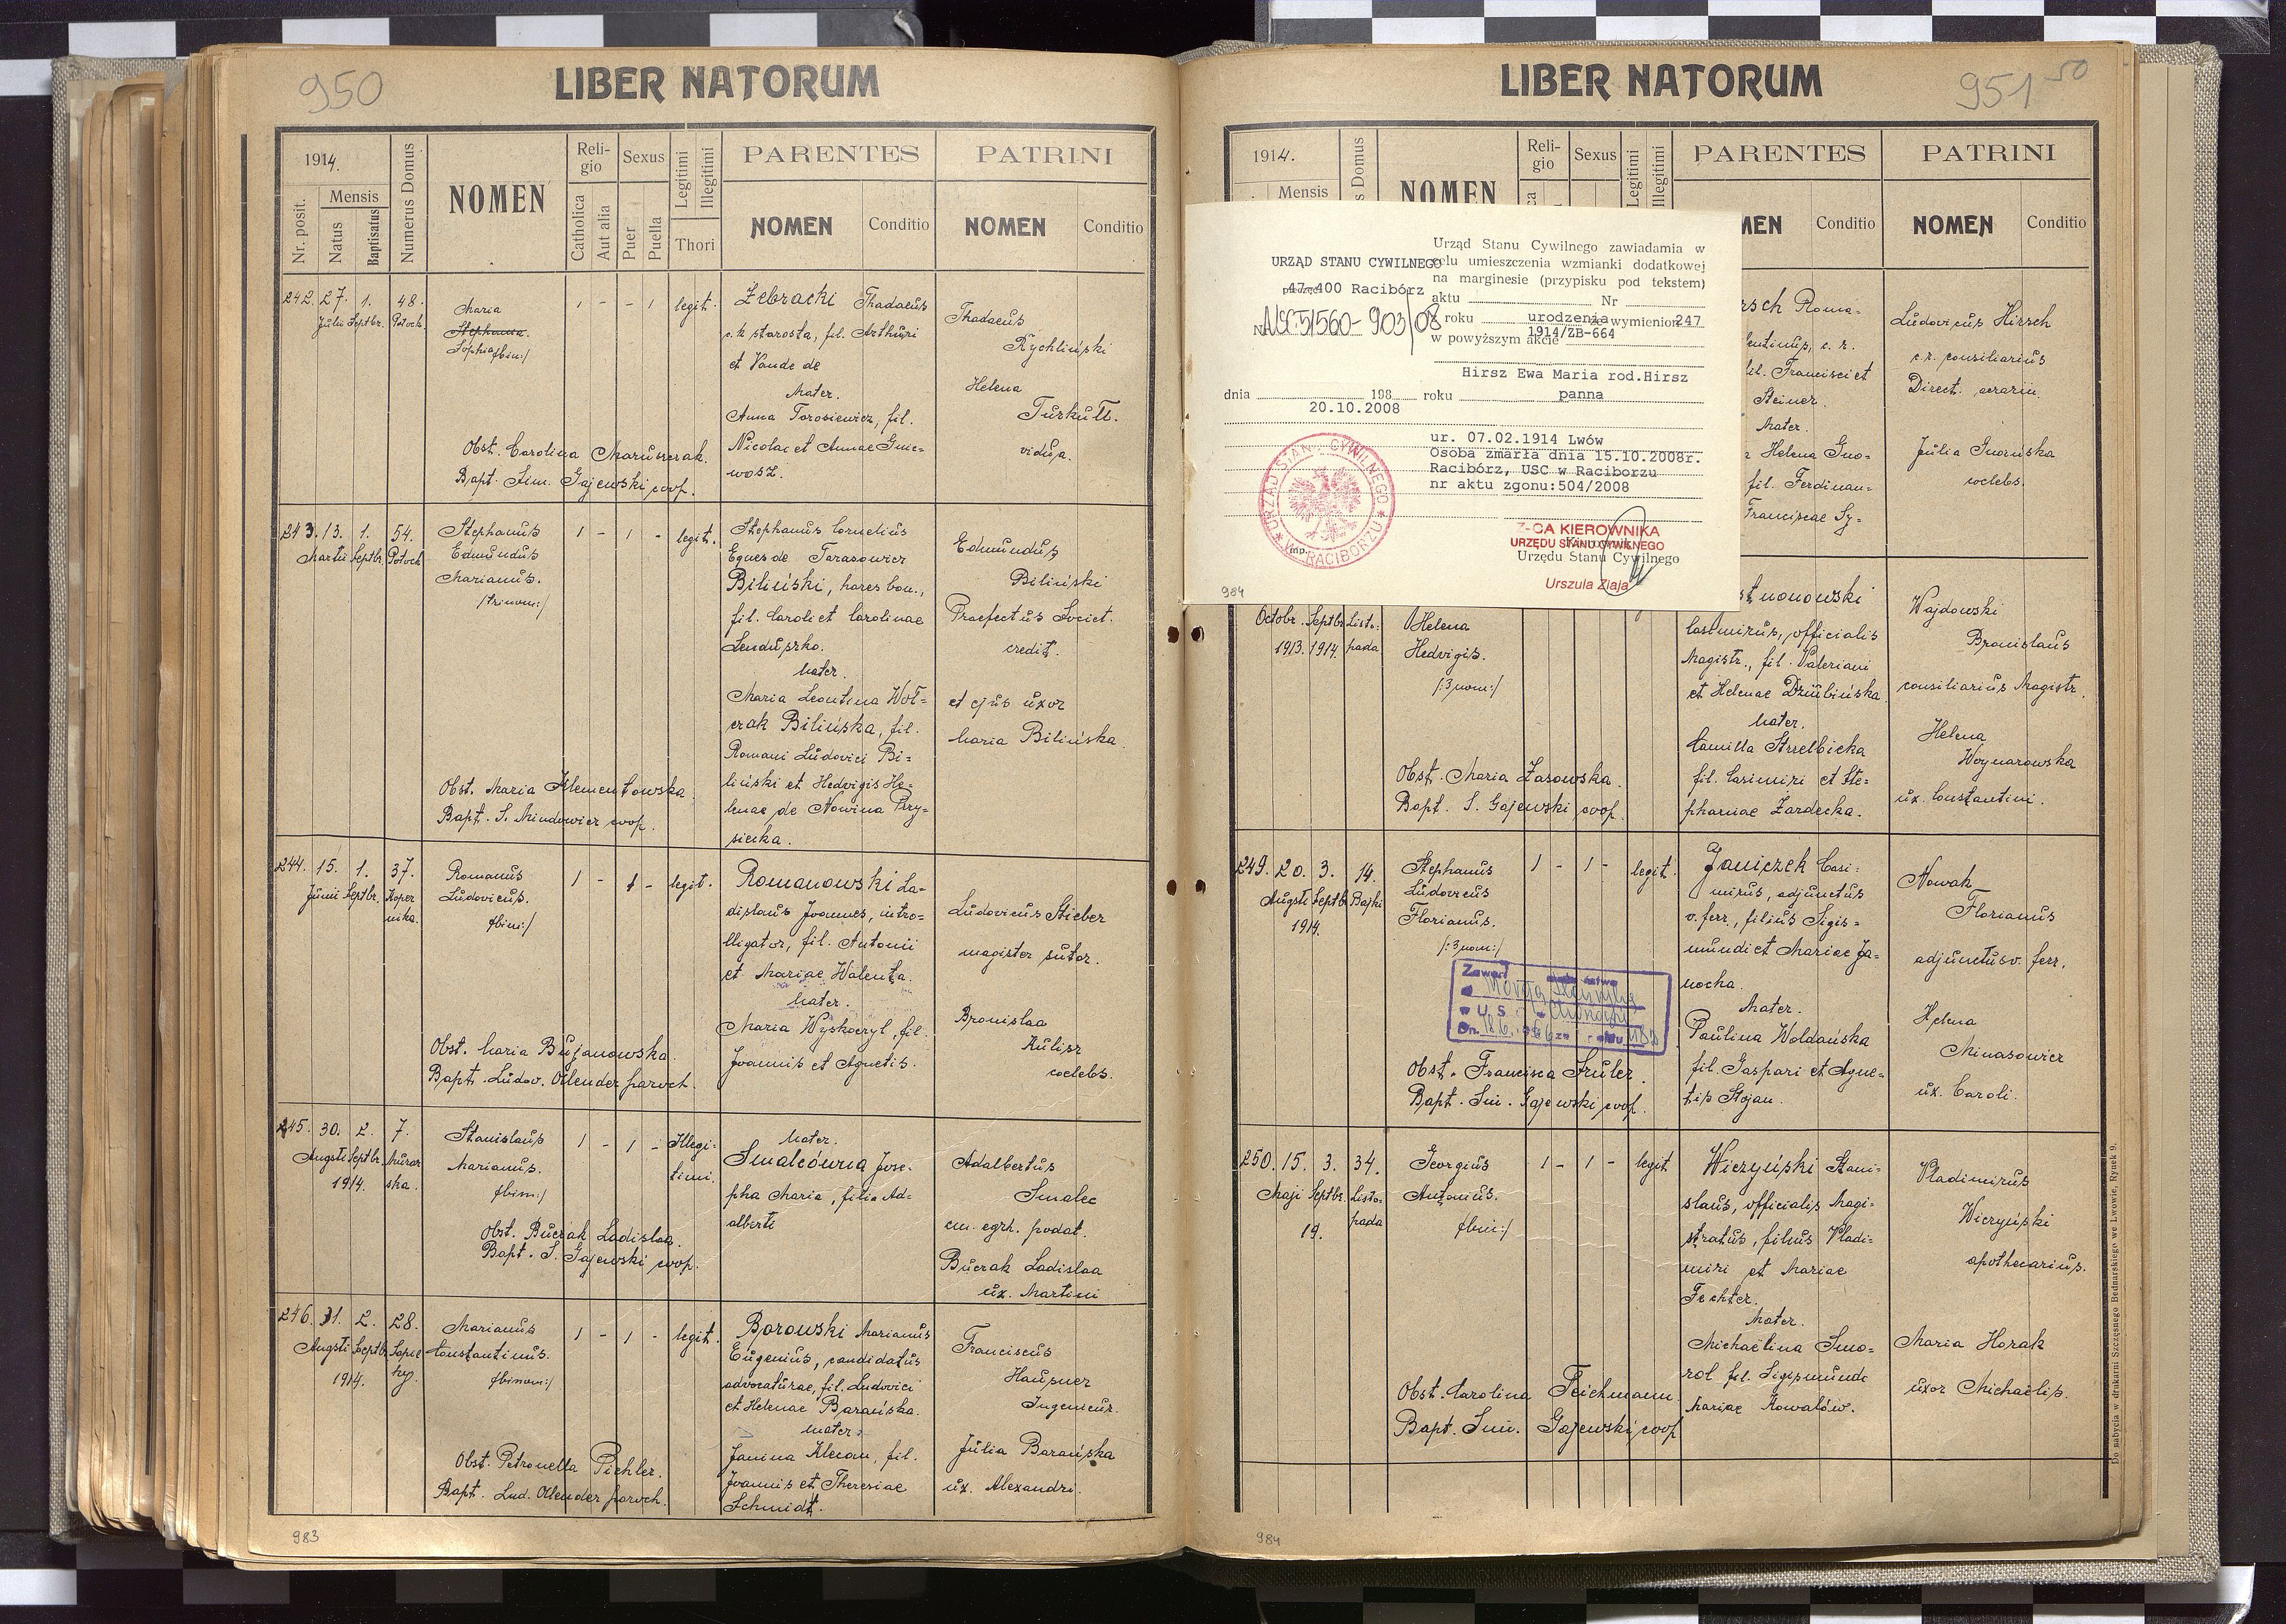 950
LIBER NATORUM
1914.
Nr. posit.
Mensis
Natus
Baptisatus
Numerus Domus
NOMEN
Religio
Catholica
Aut alia
Sexus
Puer
Puella
Legitimi
Illegitimi
Thori
PARENTES
NOMEN
Conditio
PATRINI
NOMEN
Conditio
242. 27. 1. 48.
Julii Septbr. Potock.
Maria
Stephania
Sophia /bin:/
1 - - 1 legit.
Żebracki Thadaeus
c.k. starosta, fil. Arthuri
et Vandae de
Mater.
Anna Torosiewicz, fil.
Nicolai et Annae Gnie=
wosz.
Thadaeus
Rychliński
Helena
Turkułł.
vidua.
Obst. Carolina Maruszczak.
Bapt. Sim. Gajewski coop.
243. 13. 1. 54.
Martii Septbr. Potock
Stephanus
Edmundus
Marianus.
/trinom:/
1 - 1 - legit.
Stephanus Cornelius
Eques de Tarasowicz
Biliński, hares bon.,
fil. Caroli et Carolinae
Senduszko.
Mater.
Maria Leontina Woł=
czak Bilińska, fil.
Romani Ludovici Bi=
liński et Hedvigis He=
lenae de Nowina Przy=
siecka.
Edmundus
Biliński
Praefectus Societ.
credit.
et ejus uxor
Maria Bilińska.
Obst. Maria Klementowska.
Bapt. S. Mindowicz coop.
244. 15. 1. 37.
Junii Septbr. Koper
nika.
Romanus
Ludovicus.
/bin:/
1 - 1 - legit.
Romanowski La=
dislaus Joannes, intro=
lligator, fil. Antonii
et Mariae Walenta.
Mater.
Maria Wyskoczyl, fil.
Joannis et Agnetis.
Ludovicus Stieber
magister sutor.
Bronislaa
Kulisz
coelebs.
Obst. Maria Bujanowska.
Bapt. Ludov. Ollender paroch.
245. 30. 2. 7.
Augsti Septbr. Murar
1914. ska.
Stanislaus
Marianus.
/bin:/
1 - 1 - Illegi=
timi.
Mater.
Smalcówna Jose=
pha Maria, filia Ad=
alberti
Adalbertus
Smalec
em. egzk. podat.
Buczak Ladislaa
ux. Martini
Obst. Buczak Ladislaa.
Bapt. S. Gajewski coop.
246. 31. 2. 28.
Augsti Septbr. Sapie
1914. hy.
Marianus
Constantinus.
/binom:/
1 - 1 - legit.
Borowski Marianus
Eugenius, candidatus
advocaturae, fil. Ludovici
et Helenae Barańska.
Mater:
Janina Klecan, fil.
Joannis et Theresiae
Schmidt.
Franciscus
Haupner
Ingenieur.
Julia Barańska
ux. Alexandri.
Obst. Petronella Pichler.
Bapt. Lud. Ollender paroch.
983
951
50
LIBER NATORUM
1914.
Mensis
s Domus
NOMEN
Religio
Sexus
Legitimi
Illegitimi
PARENTES
MEN
Conditio
PATRINI
NOMEN
Conditio
Urząd Stanu Cywilnego zawiadamia w
celu umieszczenia wzmianki dodatkowej
na marginesie (przypisku pod tekstem)
URZĄD STANU CYWILNEGO
47-400 Racibórz
aktu Nr
USC.51560-903/08
z roku urodzenia wymienion 247
1914/ZB-664
w powyższym akcie
Hirsz Ewa Maria rod.Hirsz
dnia 198 roku panna
20.10.2008
ur. 07.02.1914 Lwów
Osoba zmarła dnia 15.10.2008r.
Racibórz, USC w Raciborzu
nr aktu zgonu:504/2008
URZĄD STANU CYWILNEGO * W RACIBORZU *
mp.
Z-CA KIEROWNIKA
URZĘDU STANU CYWILNEGO
Kierownik
Urzędu Stanu Cywilnego
Urszula Ziaja
984
rsch Roma=
lentinus, c. r.
fil. Francisci et
Steiner.
Mater.
Helena Gno=
fil. Ferdinan=
Franciscae Sy=
Ludovicus Hirsch
c.r. consiliarius
Direct. aerarii.
Julia Gnoińska
coelebs.
Octobr. Septbr. Listo:
1913. 1914. pada
Helena
Hedvigis.
/:3 nom:/
stnonowski
Casimirus, officialis
Magistr., fil. Valeriani
et Helenae Dziubińska.
Mater.
Camilla Strzelbicka
fil. Casimiri et Ste=
phaniae Zardecka.
Wajdowski
Bronislaus
consiliarius Magistr.
Helena
Woynarowska
ux. Constantini.
Obst. Maria Zasowska.
Bapt. S. Gajewski coop.
249. 20. 3. 14.
Augsti Septbr. Bajki
1914.
Stephanus
Ludovicus
Florianus.
/:3 nom:/
1 - 1 - legit.
Janiczek Casi=
mirus, adjunctus
v. ferr., filius Sigis=
mundi et Mariae Ja=
nocha.
Mater.
Paulina Woldańska
fil. Gaspari et Agne=
tis Stojan.
Nowak
Florianus
adjunctus v. ferr.
Helena
Minasowicz
ux. Caroli.
Zawarł
U.S.
Obst. Francisca Fruler.
Bapt. Sim. Gajewski coop.
250. 15. 3. 34.
Maji Septbr. Listo=
19. pada
Georgius
Antonius.
/bin:/
1 - 1 - legit.
Wiczyński Stani=
slaus, officialis Magi=
stratus, filius Vladi=
miri et Mariae
Fechter.
Mater.
Michaëlina Smo=
rol fil. Sigismundi
Mariae Kowalów.
Vladimirus
Wiczyński
apothecarius.
Maria Horak
uxor Michaëlis.
Obst. Carolina Teichmann.
Bapt. Sim. Gajewski coop
Do nabycia w drukarni Szczęsnego Bednarskiego we Lwowie, Rynek 9.
984